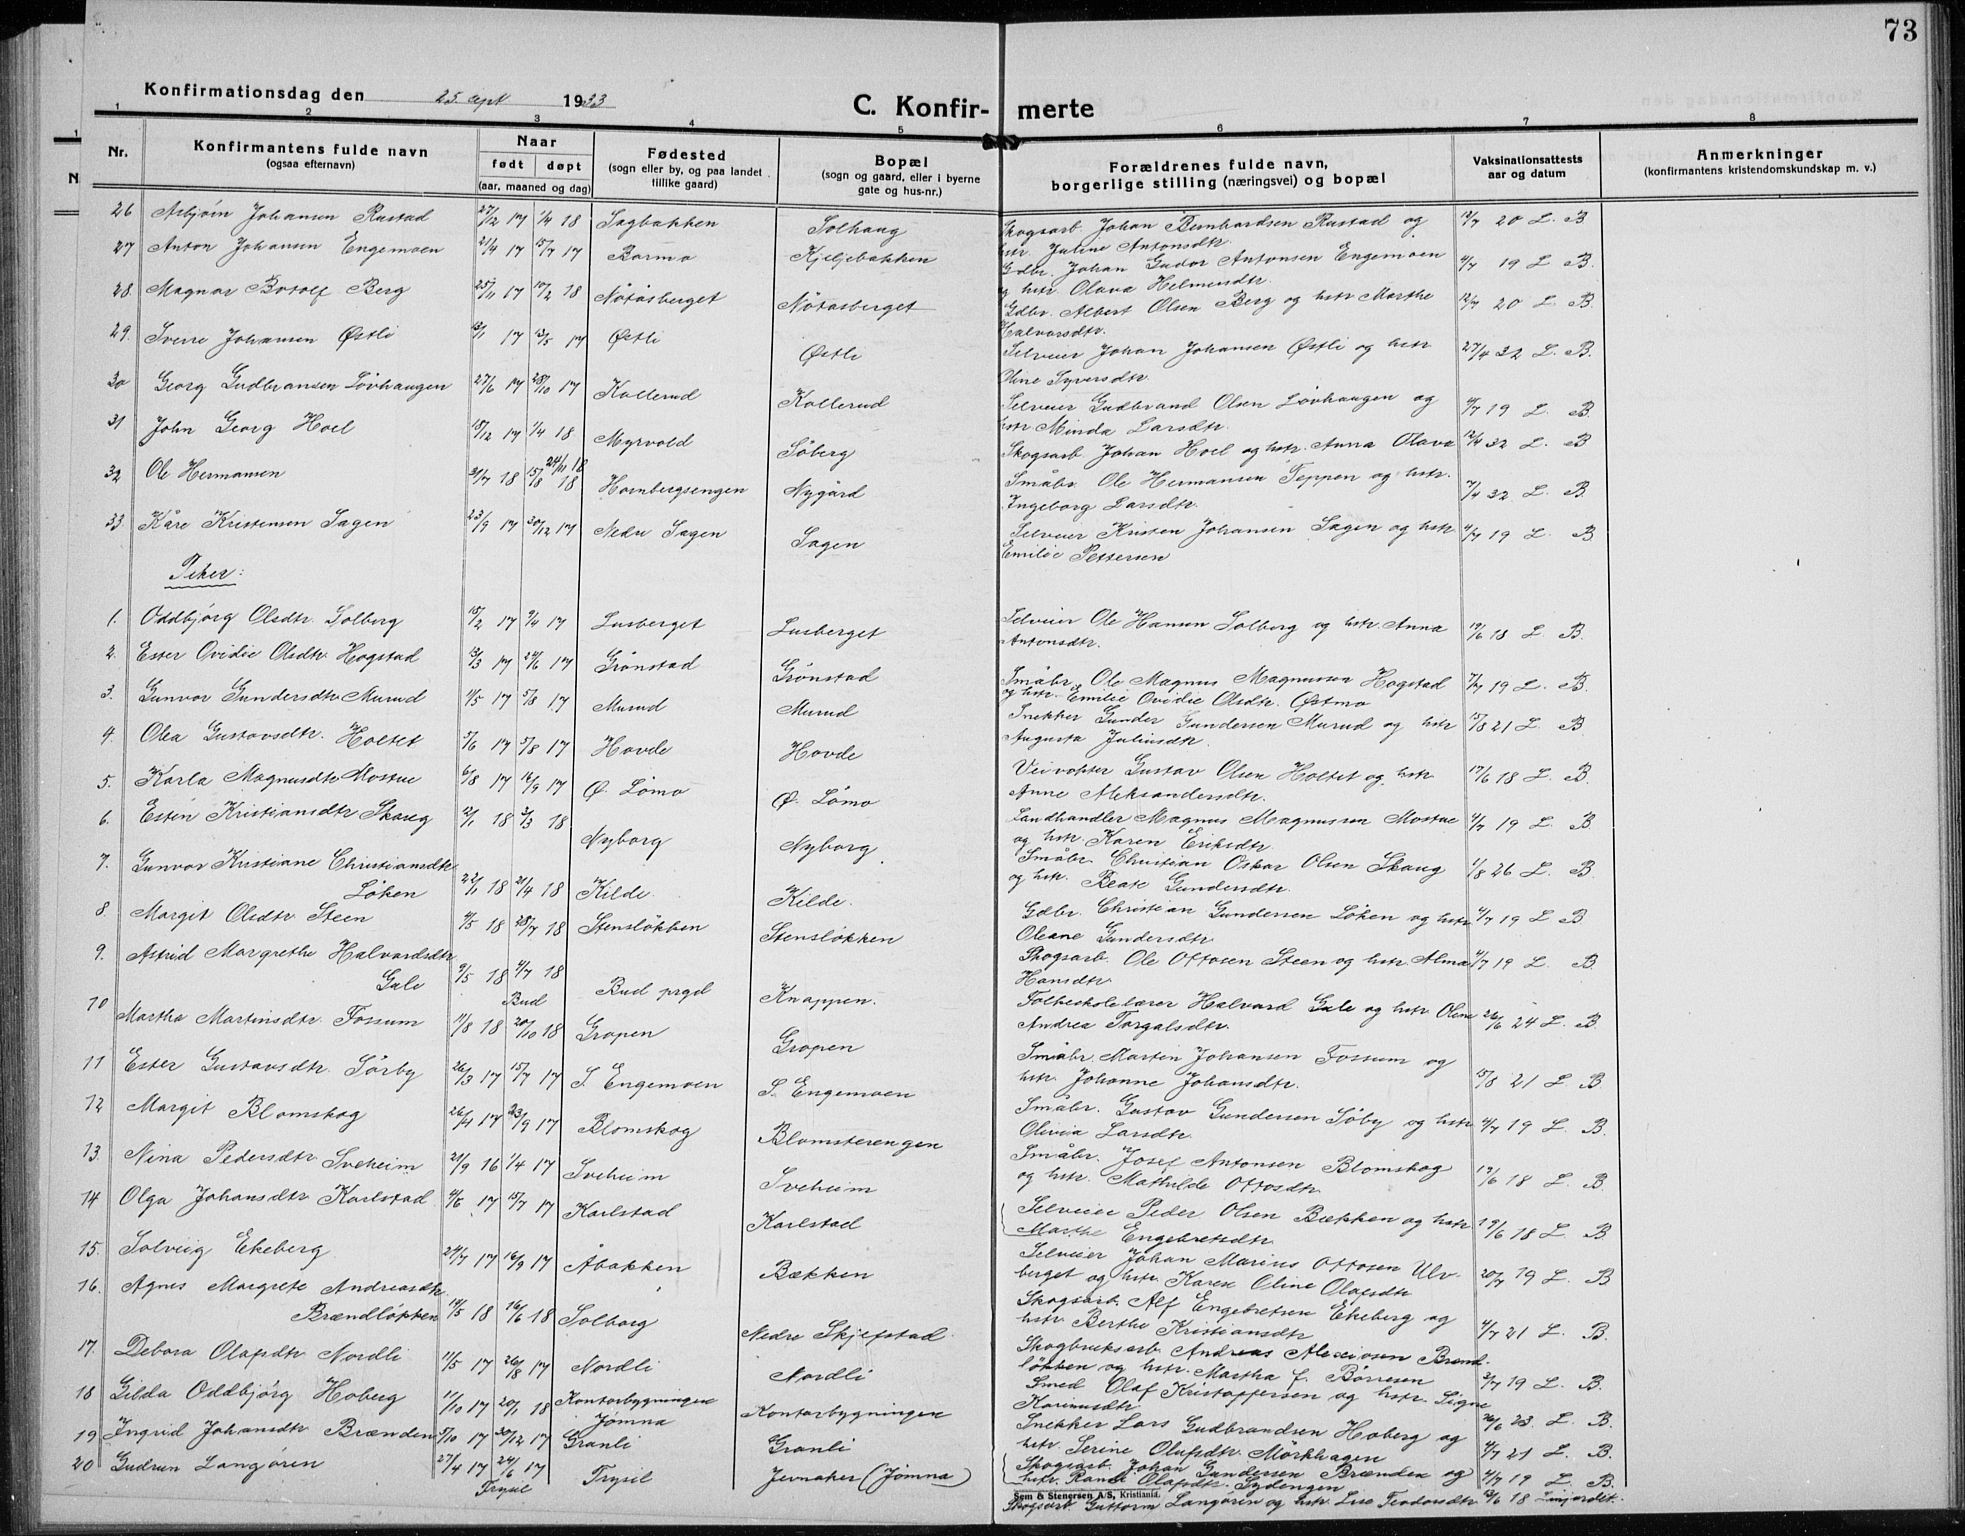 73
Konfirmationsdag den 25 sept 1933
C. Konfirmerte
1 2 3 4 5 6 7 8
Nr.
Konfirmantens fulde navn
(ogsaa efternavn)
Naar
født døpt
(aar, maaned og dag)
Fødested
(sogn eller by, og paa landet tillike gaard)
Bopæl
(sogn og gaard, eller i byerne gate og hus-nr.)
Forældrenes fulde navn,
borgerlige stilling (næringsvei) og bopæl
Vaksinationsattests
aar og datum
Anmerkninger
(konfirmantens kristendomskundskap m. v.)
26 Asbjörn Johansen Rustad 27/2 17 1/4 18 Sagbakken Solhaug Skogsarb. Johan Bernhardsen Rustad og hstr Juline Antonsdtr. 12/7 20 L. B
27 Anton Johansen Engemoen 21/4 17 15/7 17 Barmo Kjeljebakken Gdbr. Johan Gudor Antonsen Engemoen og hstr. Olava Helmersdtr. 4/7 19 L B.
28. Magnar Botolf Berg 25/11 17 10/2 18 Nötåsberget Nötåsberget Gdbr. Albert Olsen Berg og hstr Marthe Halvorsdtr. 12/7 20 L. B.
29. Sverre Johansen Østli 13/1 17 13/5 17 Østli Østli Selveier Johan Johansen Østli og hstr Oline Syversdtr. 27/4 32 L. B.
30 Georg Gudbransen Lövhaugen 27/6 17 28/10 17 Kollerud Kollerud Selveier Gudbrand Olsen Lövhaugen og hstr Minda Larsdtr. 4/7 19 L. B.
31 John Georg Hoel 18/12 17 1/4 18 Myrvold Söberg Skogsarb. Johan Hoel og hstr. Anna Olava 12/4 32 L. B
32 Ole Hermansen 31/7 18 15/8 18 24/11 18 Hornbergsengen Nygård Småbr. Ole Hermansen Teppen og hstr. Ingeborg Larsdtr. 7/4 32 L. B.
33 Kåre Kristensen Sagen 23/9 17 30/12 17 Nedre Sagen Sagen Selveier Kristen Johansen Sagen og hstr Emilie Pettersen 4/7 19 L. B
Piker:
1. Oddbjörg Olsdtr. Solberg 15/2 17 9/4 17 Lusberget Lusberget Selveier Ole Hansen Solberg og hstr. Anna Antonsdtr. 19/6 18 L B.
2. Ester Ovidie Olsdtr. Hogstad 13/3 17 24/6 17 Grönstad Grönstad Småbr. Ole Magnus Magnussen Hogstad og hstr. Emilie Ovidie Olsdtr. Östmo 7/7 19 L. B.
3. Gunvor Gundersdtr. Murud 11/5 17 5/8 17 Murud Murud Snekker Gunder Gundersen Murud og hstr Augusta Juliusdtr. 15/8 21 L B
4. Olea Gustavsdtr. Holtet 5/6 17 5/8 17 Hovde Hovde Veivokter Gustav Olsen Holtet og hstr Anne Aleksandersdtr. 17/6 18 L. B
5. Karla Magnusdtr Mostue 6/8 17 16/9 17 Ø. Lömo Ø. Lömo Landhandler Magnus Magnussen Mostue og hstr Karen Eriksdtr. 4/7 19 L. B
6. Esten Kristiansdtr Skaug 12/1 18 3/3 18 Nyborg Nyborg Småbr. Christian Oskar Olsen Skaug og hstr. Beate Gundersdtr. 1/8 26 L. B
7. Gunvor Kristiane Christiansdtr. Löken 22/1 18 21/4 18 Kilde. Kilde. Gdbr. Christian Gundersen Löken og hstr Oleane Gundersdtr 4/7 19 L B
8. Margit Olsdtr. Steen 4/5 18 28/7 18 Stenslökken Stenslökken Skogsarb. Ole Ottosen Steen og hstr. Alma Hansdtr. 4/7 19 L. B.
9. Astrid Margrethe Halvardsdtr Gule 9/5 18 4/7 18 Bud Bud prgd Knappen. Folkeskolelærer Halvard Gule og hstr. Oline Andrea Torgalsdtr. 26/6 24 L. B.
10 Martha Martinsdtr. Fossum 11/8 18 20/10 18 Gropen Gropen Småbr. Martin Johansen Fossum og hstr. Johanne Johansdtr. 15/8 21 L B
11 Ester Gustavsdtr. Sörby 26/3 17 15/7 17 S. Engemoen S. Engemoen Småbr. Gustav Gundersen Söby og hstr Olivia Larsdtr. 4/7 19 L. B.
12 Margit Blomskog 26/4 17 23/9 17 Blomskog Blomsterengen Småbr. Josef Antonsen Blomskog og hstr. Mathilde Ottosdtr. 19/6 18 L. B.
13. Nina Pedersdtr. Sveheim 21/9 16 1/4 17 Sveheim Sveheim Selveier Peder Olsen Bækken og hstr. Marthe Engebretsdtr. 19/6 18 L. B
14 Olga Johansdtr Karlstad 4/5 17 15/7 17 Karlstad Karlstad Selveier Johan Marius Ottosen Ulvberget og hstr. Karen Oline Olafsdtr 20/7 19 L. B
15. Solveig Ekeberg 24/7 17 16/9 17 Åbakken Bækken Skogsarb. Alf Engebretsen Ekeberg og hstr Berthe Kristiansdtr 4/7 21 L. B.
16. Agnes Margrete Andreasdtr. Brændlökken 14/5 18 16/6 18 Solborg Nedre Skjefstad. Skogbruksarb. Andreas Alexiosen Brændlökken og hstr. Martha f. Börresen 3/7 19 L. B.
17. Debora Olafsdtr Nordli 11/5 17 26/8 17 Nordli Nordli Smed Olaf Kristoffersen og hstr. Signe Karinusdtr 26/6 23 L. B.
18 Gilda Oddbjörg Hoberg 11/10 17 20/1 18 Kontorbygningen Jömna Kontorbygningen Snekker Lars Gudbrandsen Hoberg og hstr. Serine Olufsdtr. Mörkhagen 4/7 21 L. B.
19 Ingrid Johansdtr Brænden 5/10 17 30/12 17 Granli Granli Skogsarb. Johan Gundersen Brænden og hstr. Randi Olafsdtr. Sydengen 4/7 19 L. B.
20 Gudrun Langören 27/4 17 24/6 17 Trysil Trysil Jernaker (Jömna) Skogsarb. Guttorm Langören og hstr Lise Teodorsdtr 13/6 18 Linjordet.
Sem & Stenersen A/S, Kristiania.